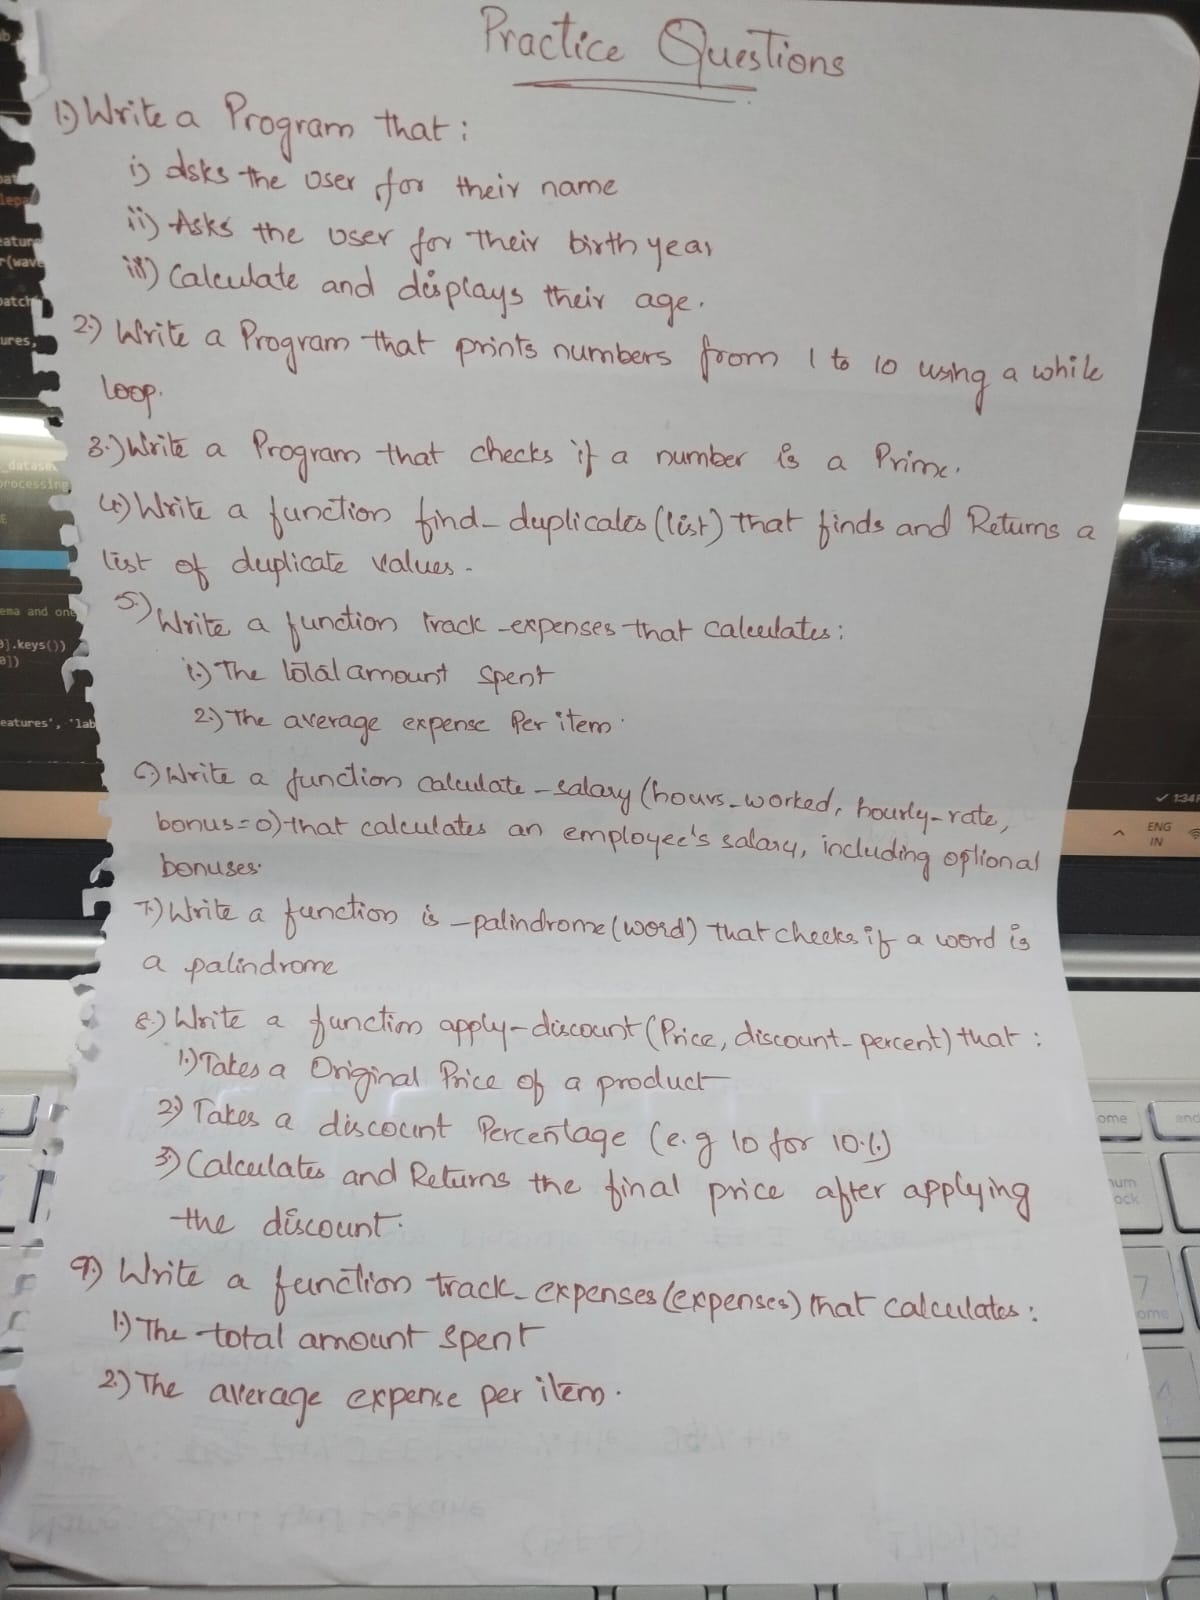 Practice Questions
1.) Write a Program that :
i) Asks the user for their name
ii) Asks the user for their birth year
iii) Calculate and displays their age.
2.) Write a Program that prints numbers from 1 to 10 using a while
loop.
3.) Write a Program that checks if a number is a Prime.
4.) Write a function find_duplicates (list) that finds and Returns a
list of duplicate values.
5.) Write a function track_expenses that calculates :
1.) The total amount spent
2.) The average expense Per item.
6.) Write a function calculate_salary (hours_worked, hourly_rate,
bonus=0) that calculates an employee's salary, including optional
bonuses.
7.) Write a function is_palindrome (word) that checks if a word is
a palindrome
8.) Write a function apply_discount (Price, discount_percent) that :
1.) Takes a Original Price of a product
2) Takes a discount Percentage (e.g 10 for 10%)
3) Calculates and Returns the final price after applying
the discount.
9.) Write a function track_expenses (expenses) that calculates :
1.) The total amount spent
2.) The average expense per item.
ema and one
].keys())
eatures', 'lab
ENG
IN
num
7